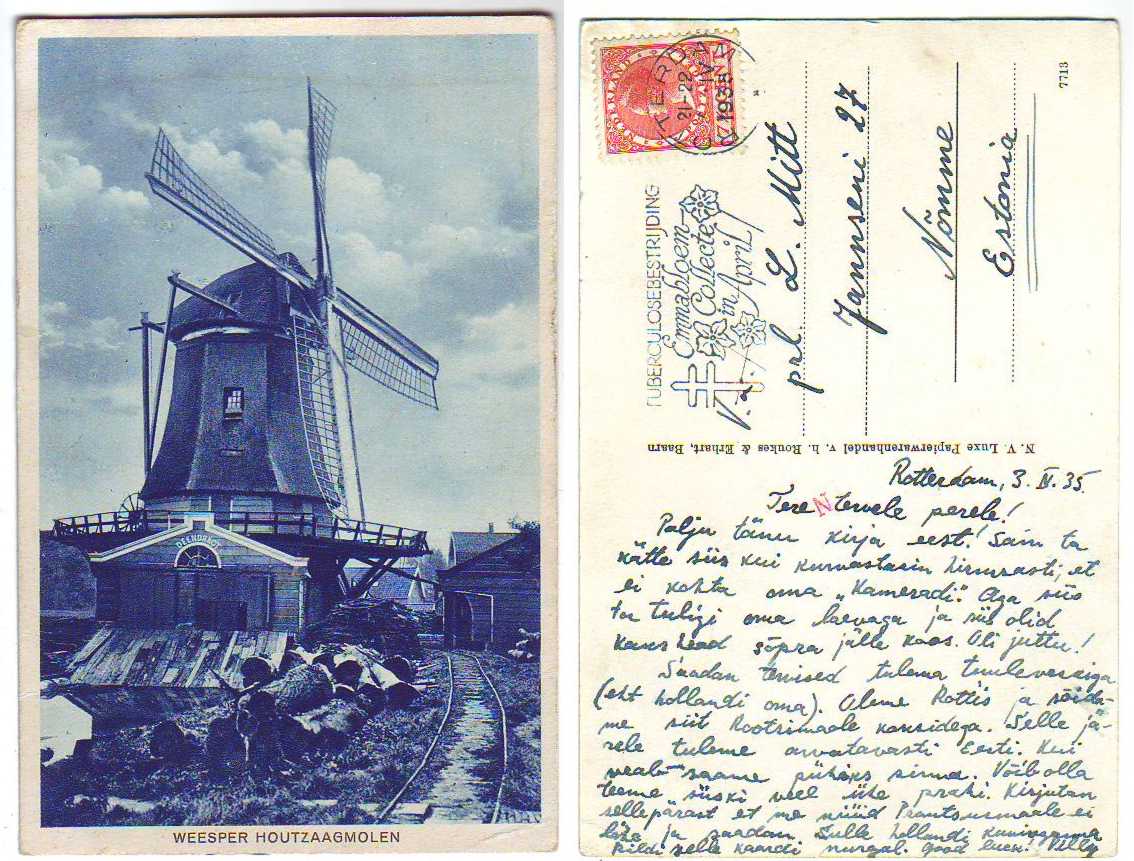 DEENDRAGT
WEESPER HOUTZAAGMOLEN
TERDAM
21-22
IV
1935
TUBERCULOSEBESTRIJDING
Emmabloem
Collecte
in April
prl. L. Mitt
Jannseni 27
Nõmme
Estonia
7713
N. V. Luxe Papierwarenhandel v. h. Roukes & Erhart, Baarn
Rotterdam, 3. IV. 35.
Tere N tervele perele!
Palju tänu kirja eest! Sain ta
kätte siis kui kurvastasin hirmsasti, et
ei kohta oma "Kameradi". Aga siis
ta tuligi oma laevaga ja siis olid
kaks head sõpra jälle koos. Oli juttu!
Saadan tervised tulema tuuleveskiga
(eht hollandi oma). Oleme Rottis ja sõida-
me siit Rootsimaale koksidega. Selle jä-
rele tuleme arvatavasti Eesti. Kui
veab saame pühiks sinna. Võib olla
teeme siiski veel ühe prahi. Kirjutan
sellepärast et me nüüd Prantsusmaale ei
lähe ja saadan Sulle hollandi kuninganna
pildi selle kaardi nurgal. Good luck! Villy